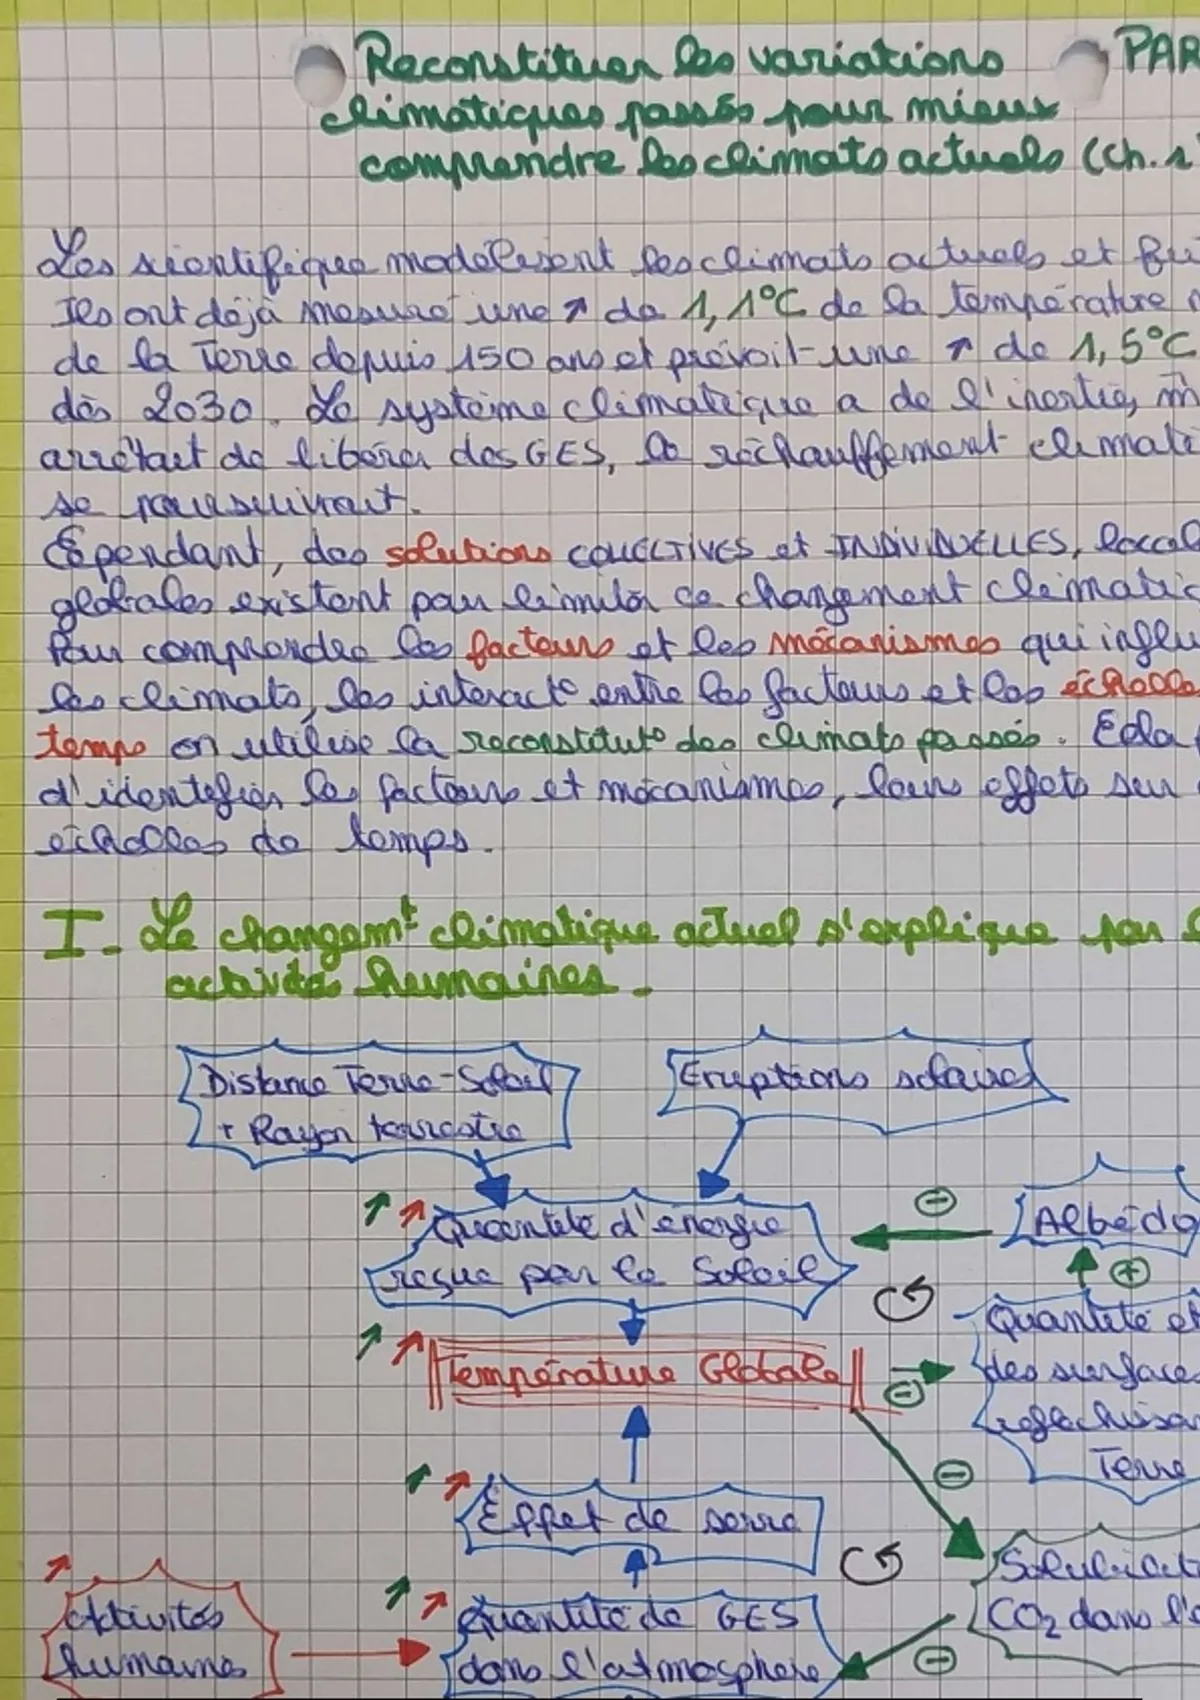 Reconstituer les variations PAR
climatiques passés pour mieux
comprendre les climats actuels (ch. 1
Les scientifiques modélisent les climats actuels et fu
Ils ont déjà mesuré une ↗ de 1,1°C de la température
de la Terre depuis 150 ans et prévoit une ↗ de 1,5°C
dès 2030. Le système climatique a de l'inertie, m
arrêtait de libérer des GES, le réchauffement climati
se poursuivrait.
Cependant, des solutions COLLECTIVES et INDIVIDUELLES, local
globales existent pour limiter ce changement climatic
Pour comprendre les facteurs et les mécanismes qui influ
les climats, les interact° entre les facteurs et les échelle
temps on utilise la reconstitut° des climats passés. Cela
d'identifier les facteurs et mécanismes, leurs effets sur
échelles de temps.
I- Le changemt climatique actuel s'explique par l
activités humaines.
Distance Terre-Soleil
+ Rayon terrestre
Eruptions solaires
↗ ↗ Quantité d'énergie
reçue par le Soleil
⊖
Albédo
⊕
↗ ↗ Température Globale
⊖
Quantité et
des surfaces
reflechissan
Terre
⊖
↗ ↗ Effet de serre
↗ Activités
humaines
↗ ↗ Quantité de GES
dans l'atmosphère
⊖
Solubilit
CO2 dans l'o